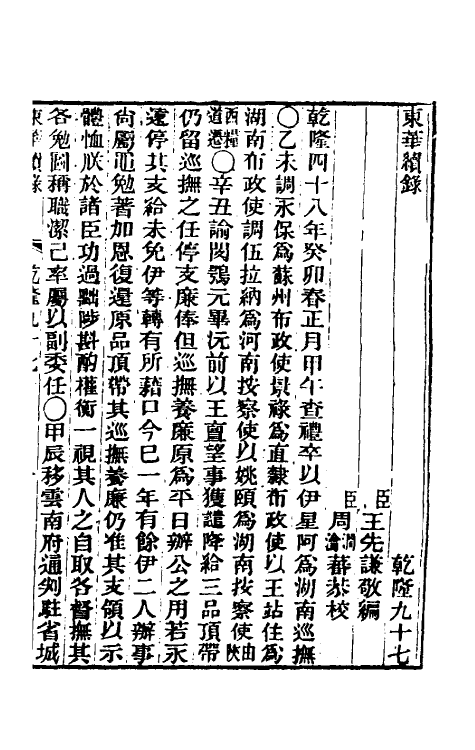 東華續錄
乾隆九十七
臣王先謙敬編
臣周潤蕃恭校
乾隆四十八年癸卯春正月甲午查禮卒以伊星阿為湖南巡撫
〇乙未調永保為蘇州布政使景祿為直隸布政使以王站住為
湖南布政使調伍拉納為河南按察使以姚頤為湖南按察使由陝
西糧道遷〇辛丑諭閔鶚元畢沅前以王亶望事獲譴降給三品頂帶
仍留巡撫之任停支廉俸但巡撫養廉原為平日辦公之用若永
遠停其支給未免伊等轉有所藉口今已一年有餘伊二人辦事
尚屬黽勉著加恩復還原品頂帶其巡撫養廉仍准其支領以示
體恤朕於諸臣功過黜陟斟酌權衡一視其人之自取各督撫其
各勉圖稱職潔己率屬以副委任〇甲辰移雲南府通判駐省城
東華續錄 乾隆九十七